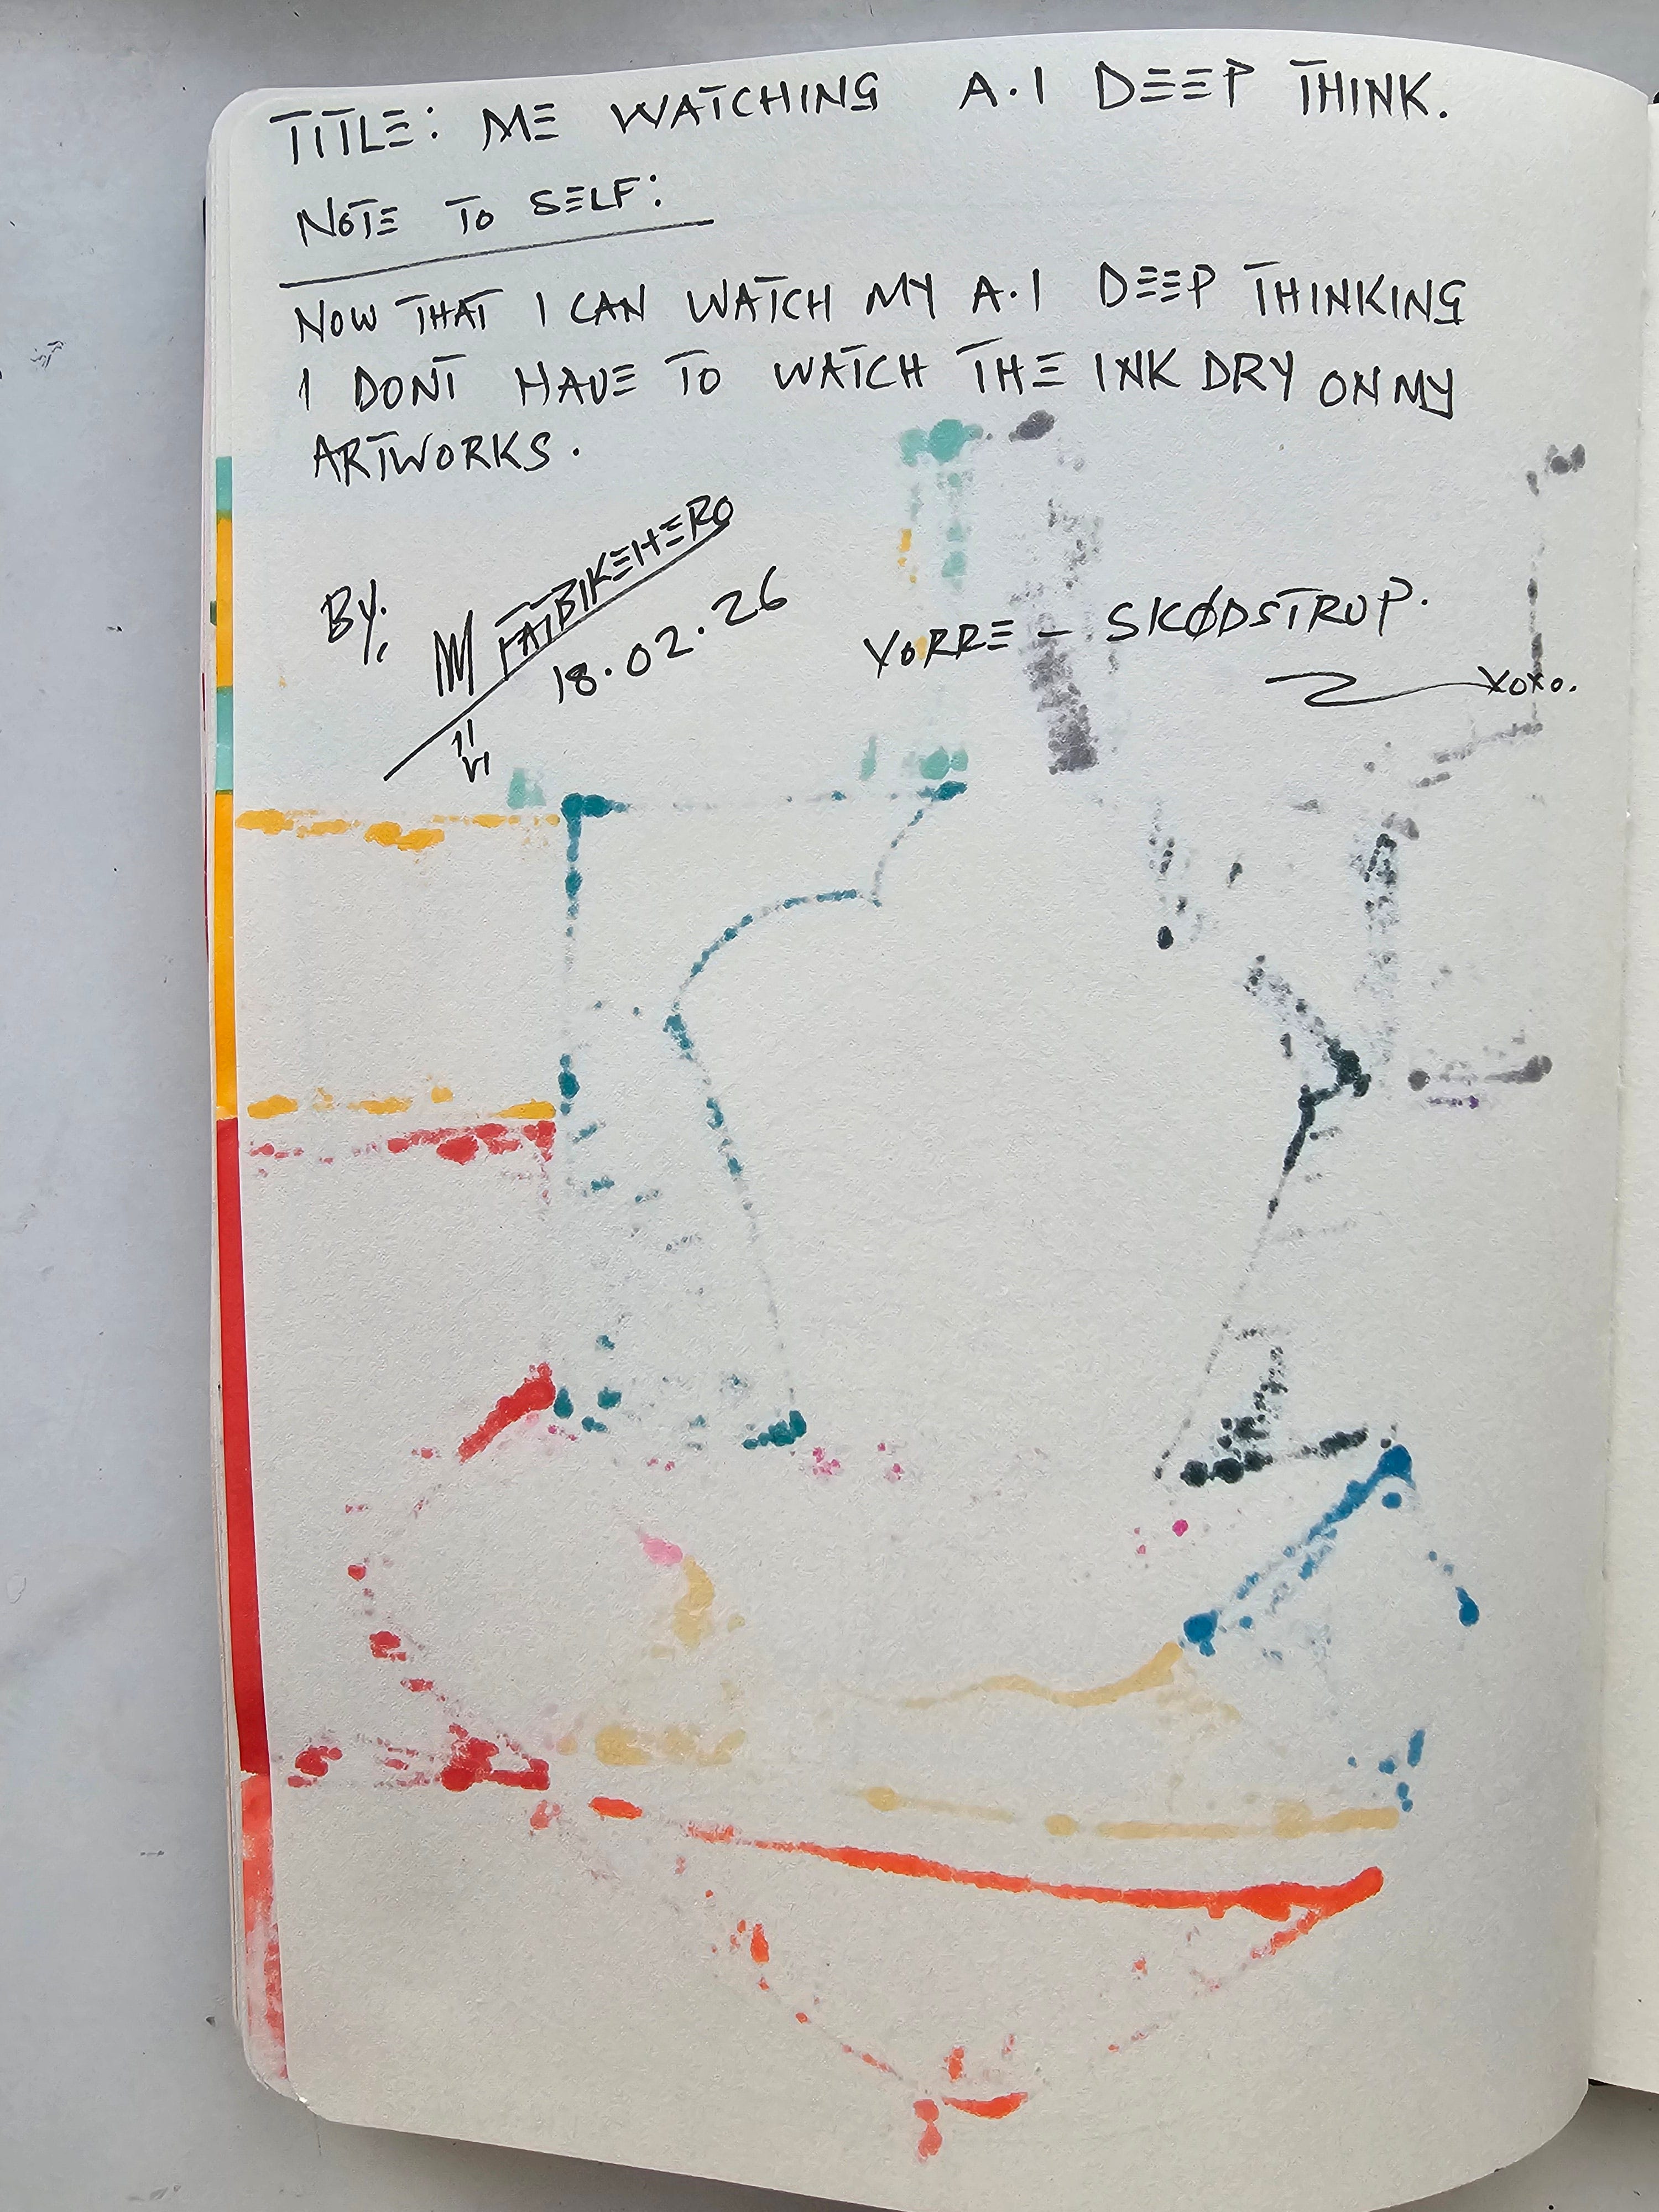 TITLE: ME WATCHING A.I DEEP THINK.
NOTE TO SELF:
NOW THAT I CAN WATCH MY A.I DEEP THINKING
I DONT HAVE TO WATCH THE INK DRY ON MY
ARTWORKS.
BY:
FATBIKEHERO
18.02.26
VORRE - SKØDSTRUP.
XOXO.